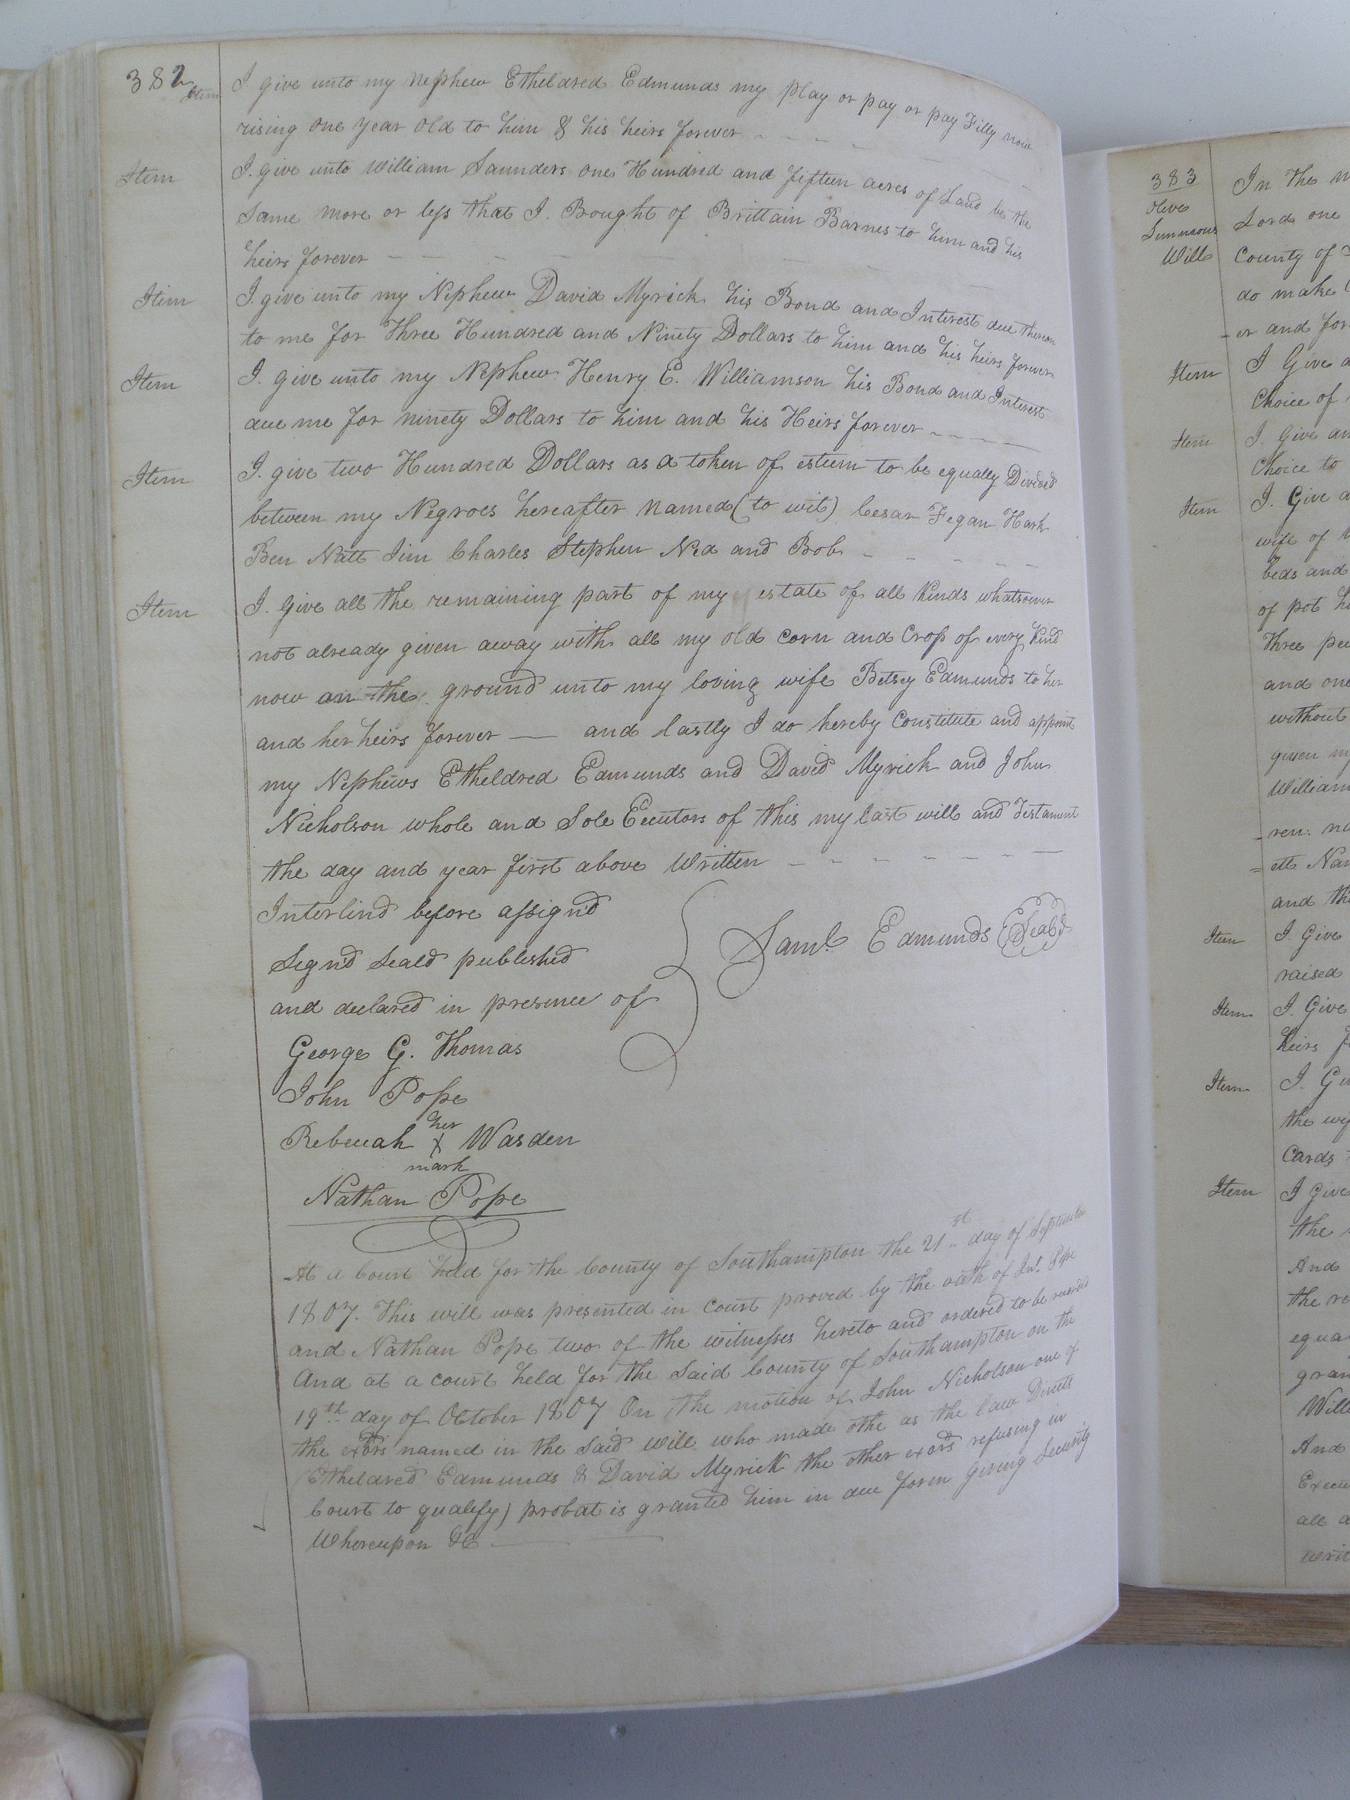 382
Item I give unto my nephew Etheldred Edmunds my play or pay or pay Filly now
rising one year old to him & his heirs forever
Item I give unto William Saunders one Hundred and fifteen acres of Land be the
same more or less that I Bought of Brittain Barnes to him and his
heirs forever
Item I give unto my Nephew David Myrick his Bond and Interest due thereon
to me for Three Hundred and Ninety Dollars to him and his heirs forever
Item I give unto my Nephew Henry E. Williamson his Bond and Interest
due me for ninety Dollars to him and his Heirs forever
Item I give two Hundred Dollars as a token of esteem to be equally Divided
between my Negroes hereafter named (to wit) Cesar Fegan Hark
Ben Natt Jim Charles Stephen Ned and Bob
Item I Give all the remaining part of my estate of all kinds whatsoever
not already given away with all my old corn and Crop of every kind
now on the ground unto my loving wife Betsey Edmunds to her
and her heirs forever — and lastly I do hereby Constitute and appoint
my Nephews Etheldred Edmunds and David Myrick and John
Nicholson whole and Sole Eecutors of this my last will and Testament
the day and year first above Written
Interlind before assign'd
Sign'd Seald published
and declared in presence of
Saml. Edmunds Seal
George G. Thomas
John Pope
her
Rebecah X Wasden
mark
Nathan Pope
At a Court held for the County of Southampton the 21st day of September
1807. This will was presented in Court proved by the oath of Jno. Pope
and Nathan Pope two of the witnesses hereto and ordered to be recorded
And at a court held for the said County of Southampton on the
19th day of October 1807 On the motion of John Nicholson one of
the exors named in the said will who made othe as the law Directs
(Etheldred Edmunds & David Myrick the other exors refusing in
Court to qualify) probat is granted him in due form Giving Security
Whereupon &c
383
Will
In the
Lord one
County of
do make
er and for
Item I Give
Choice of
Item I Give
Choice to
Item I Give
wife of
beds and
of pot
three
and one
without
given my
William
ren
and
Item I Give
raised
Item I Give
heirs
Item I
the
Cards
Item I Give
the
And
the
And
all